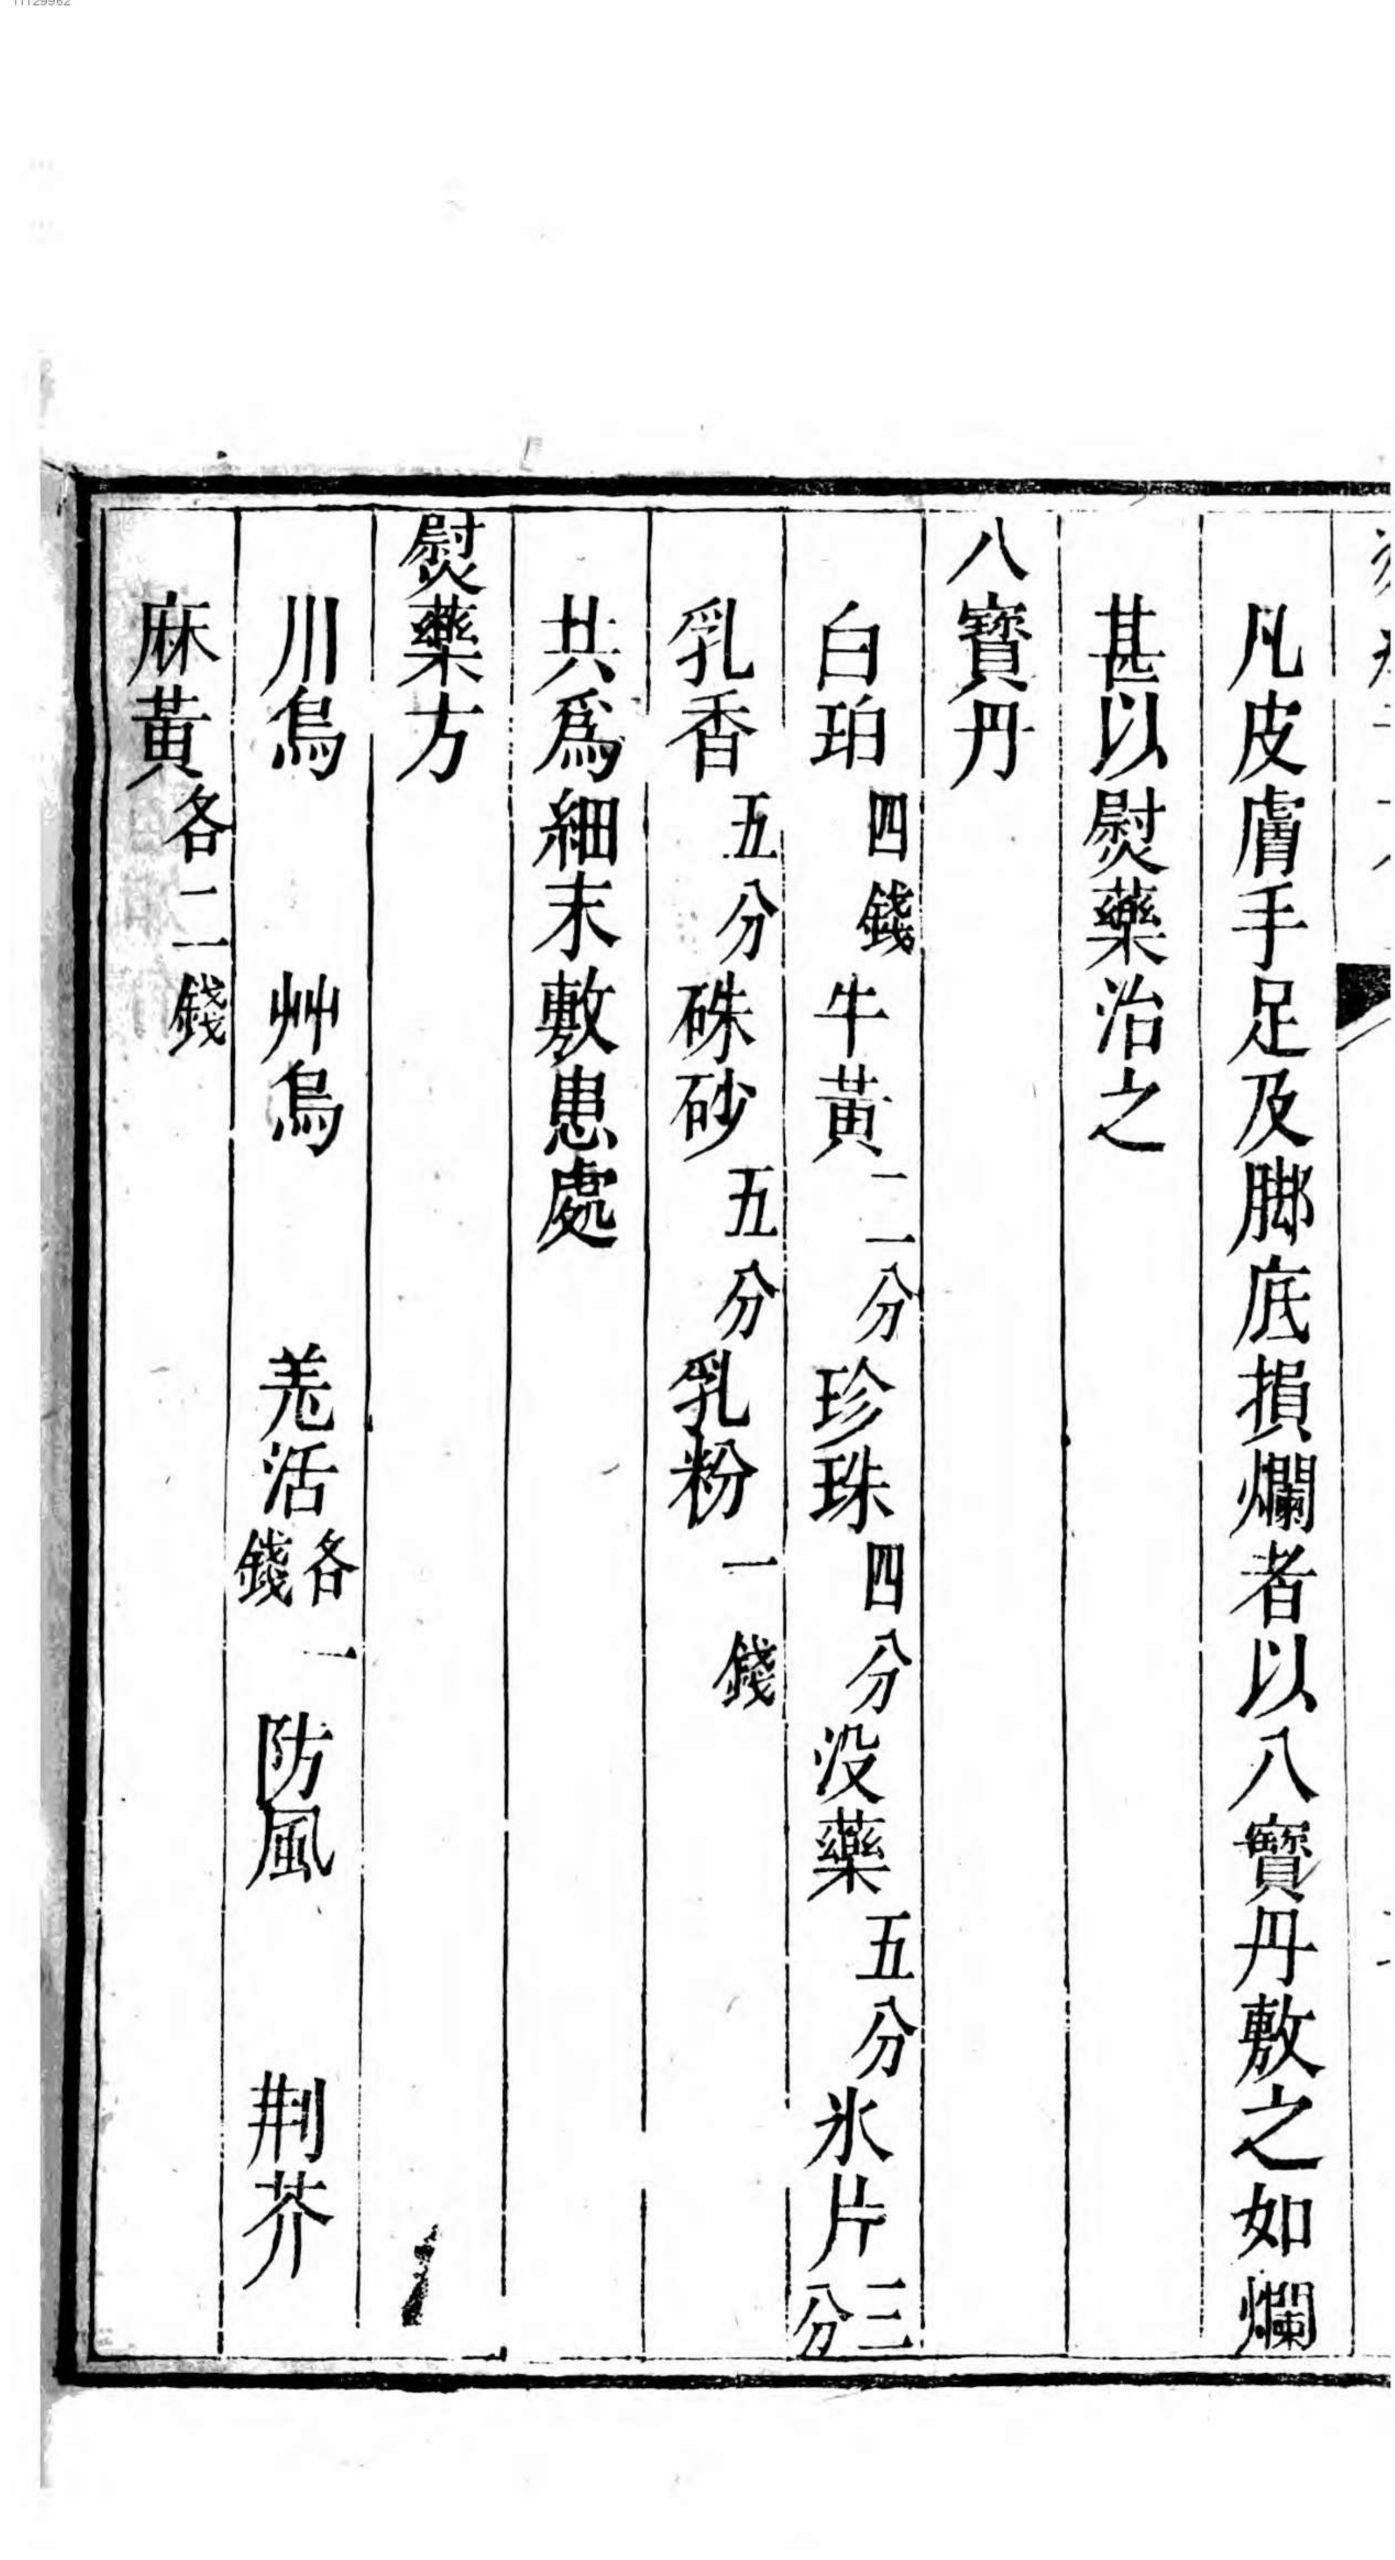 凡皮膚手足及脚底損爛者以八寳丹敷之如爛
甚以熨藥治之
八寳丹
白珀四錢牛黄二分珍珠四分没藥五分氷片三分
乳香五分硃砂五分乳粉一錢
共爲細末敷患處
熨藥方
川烏 艸烏 羌活各一錢防風 荆芥
麻黄各二錢
11129962